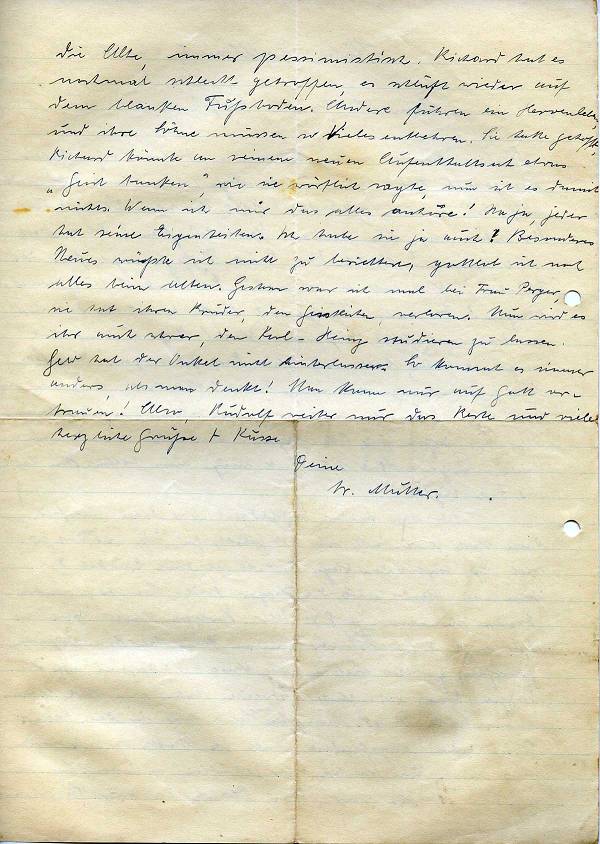 die Alte, immer pessimistisch. Richard hat es
nochmal schlecht getroffen, er schläft wieder auf
dem blanken Fußboden. Andere führen ein Herrenleben,
und ihre Söhne müssen so vieles entbehren. Sie hatte gehofft,
Richard könnte an seinem neuen Aufenthaltsort etwas
„ wie sie wörtlich sagte, nun ist es damit
nichts. Wenn ich mir das alles anhöre! Na ja, jeder
hat seine Eigenheiten. Ich habe sie ja auch! Besonderes
Neues wüßte ich nicht zu berichten, gottlob ist noch
alles beim alten. Gestern war ich mal bei Frau Perger,
sie hat ihren Bruder, den verloren. Nun wird es
ihr auch schwer, den Karl-Heinz studieren zu lassen.
Geld hat der Onkel nicht hinterlassen. So kommt es immer
anders, als man denkt! Man kann nur auf Gott ver-
trauen! Also, Rudolf weiter nur das Beste und viele
herzliche Grüße + Küsse
Deine
tr. Mutter.